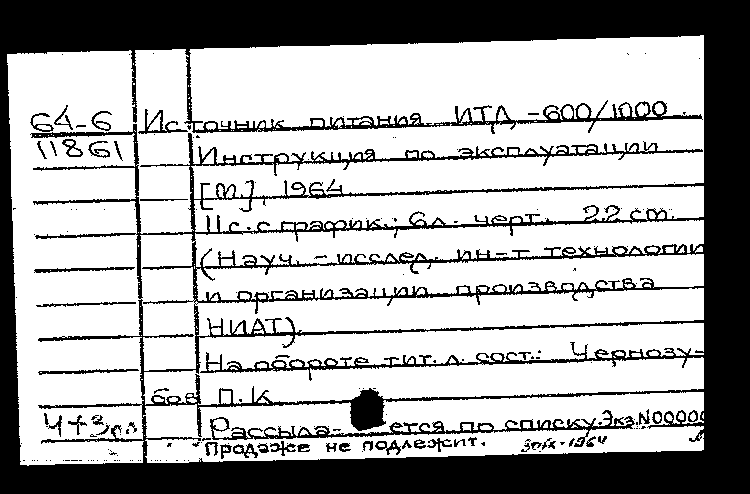 64-6 Источник питания ИТД-600/1000
11861 Инструкция по эксплуатации
[М.], 1964.
11 с. с график.; 6 л. черт. 22 см.
(Науч.-исслед. ин-т технологии
и организации производства
НИАТ).
На обороте тит. л. сост.: Чернозу-
бов П.К.
Ч+3 Рассыла-ется по списку. Экз. N00000
Продаже не подлежит.